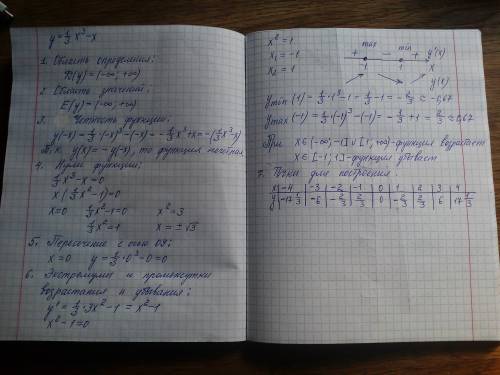 y = 1/3 x³ - x
1. Область определения:
D(y) = (-∞; +∞)
2. Область значений:
E(y) = (-∞; +∞)
3. Четность функции:
y(-x) = 1/3 · (-x)³ - (-x) = - 1/3 x³ + x = -(1/3 x³ - x)
Т.к. y(x) = - y(-x), то функция нечетная
4. Нули функции:
1/3 x³ - x = 0
x (1/3 x² - 1) = 0
x = 0 1/3 x² - 1 = 0 x² = 3
1/3 x² = 1 x = ± √3
5. Пересечение с осью OY:
x = 0 y = 1/3 · 0³ - 0 = 0
6. Экстремумы и промежутки
возрастания и убывания:
y' = 1/3 · 3x² - 1 = x² - 1
x² - 1 = 0
x² = 1
x₁ = -1
x₂ = 1
max min
+ - + y'(x)
-1 1 x
y(x)
ymin (1) = 1/3 · 1³ - 1 = 1/3 - 1 = - 2/3 ≈ -0,67
ymax (-1) = 1/3 · (-1)³ - (-1) = - 1/3 + 1 = 2/3 ≈ 0,67
При x ∈ (-∞; -1] ∪ [1; +∞) - функция возрастает
x ∈ [-1; 1] - функция убывает
7. Точки для построения:
x -4 -3 -2 -1 0 1 2 3 4
y -17 1/3 -6 - 2/3 2/3 0 - 2/3 2/3 6 17 1/3